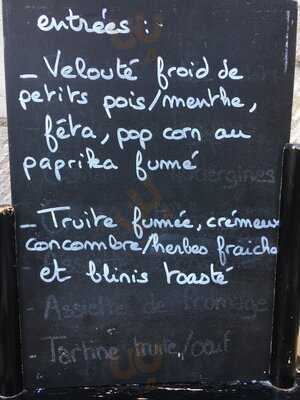 entrées :
_ Velouté froid de
petits pois/menthe,
féta, pop corn au
paprika fumé
aubergines
_ Truite fumée, crémeux
concombre/herbes fraich
et blinis toasté
- Assiette de fromage
- Tartine truite/oeuf